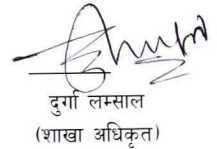 दुर्गा लम्साल
(शाखा अधिकृत)